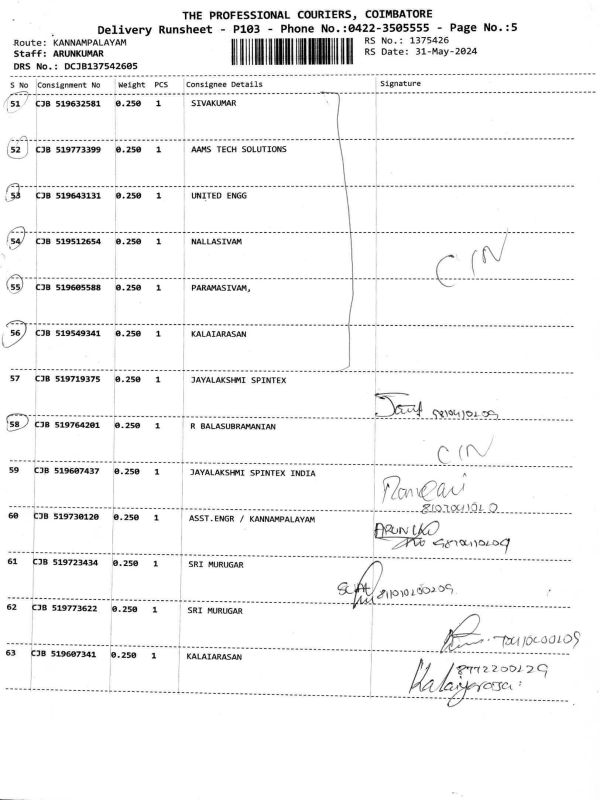 THE PROFESSIONAL COURIERS, COIMBATORE
Delivery Runsheet - P103 - Phone No.:0422-3505555 - Page No.:5
Route: KANNAMPALAYAM RS No.: 1375426
Staff: ARUNKUMAR RS Date: 31-May-2024
DRS No.: DCJB137542605
S No Consignment No Weight PCS Consignee Details Signature
51 CJB 519632581 0.250 1 SIVAKUMAR
52 CJB 519773399 0.250 1 AAMS TECH SOLUTIONS
53 CJB 519643131 0.250 1 UNITED ENGG
54 CJB 519512654 0.250 1 NALLASIVAM
CIN
55 CJB 519605588 0.250 1 PARAMASIVAM,
56 CJB 519549341 0.250 1 KALAIARASAN
57 CJB 519719375 0.250 1 JAYALAKSHMI SPINTEX
58 CJB 519764201 0.250 1 R BALASUBRAMANIAN
CIN
59 CJB 519607437 0.250 1 JAYALAKSHMI SPINTEX INDIA
60 CJB 519730120 0.250 1 ASST.ENGR / KANNAMPALAYAM
61 CJB 519723434 0.250 1 SRI MURUGAR
62 CJB 519773622 0.250 1 SRI MURUGAR
63 CJB 519607341 0.250 1 KALAIARASAN